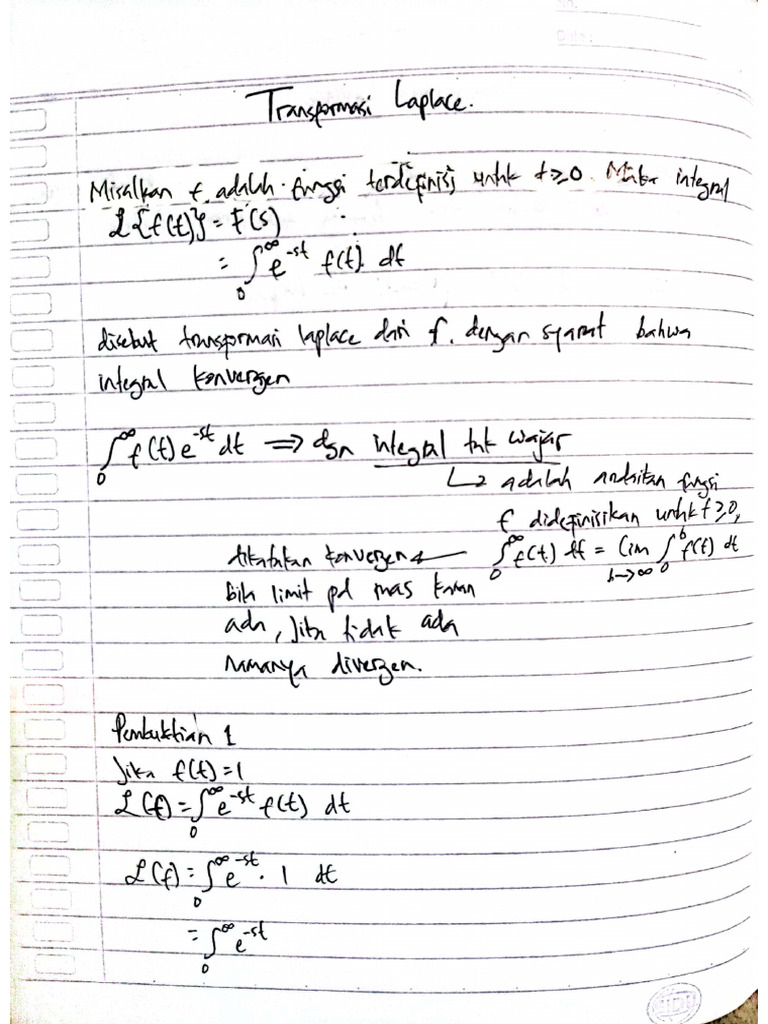 No.
Date:
Transformasi Laplace.
Misalkan f adalah fungsi terdefinisi untuk t≥0. Maka integral
ℒ{f(t)} = F(s)
= ∫₀^∞ e^-st f(t) dt
disebut transformasi laplace dari f. dengan syarat bahwa
integral konvergen
∫₀^∞ f(t) e^-st dt ⟹ dgn integral tak wajar
↳ adalah andaikan fungsi
f didefinisikan untuk t≥0,
∫₀^∞ f(t) dt = lim b→∞ ∫₀^b f(t) dt
dikatakan konvergen ←
bila limit pd ruas kanan
ada, jika tidak ada
namanya divergen.
Pembuktian 1
Jika f(t)=1
ℒ(f) = ∫₀^∞ e^-st f(t) dt
ℒ(f) = ∫₀^∞ e^-st · 1 dt
= ∫₀^∞ e^-st
SIDU